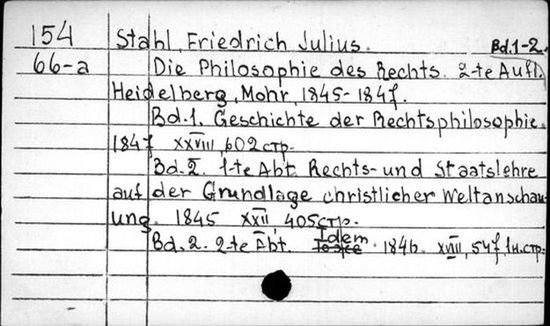 154 Stahl, Friedrich Julius. Bd.1-2.
66-a Die Philosophie des Rechts. 2-te Aufl.
Heidelberg, Mohr, 1845-1847.
Bd.1. Geschichte der Rechtsphilosophie.
1847 XXVIII, 602 стр.
Bd.2. 1-te Abt. Rechts- und Staatslehre
auf der Grundlage christlicher Weltanschau-
ung. 1845 XXII, 405 стр.
Bd.2. 2-te Abt. Idem. 1846. XVIII, 547, 1н.стр.